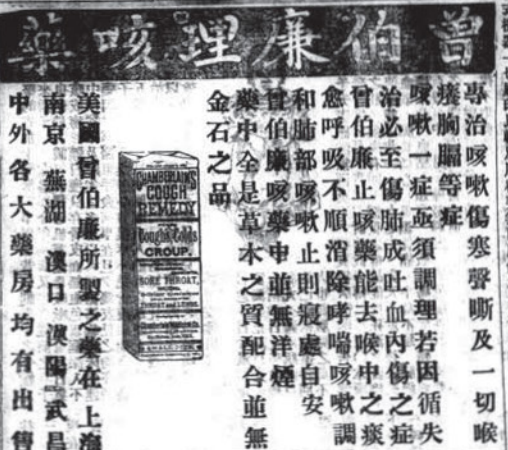 曾伯廉理咳藥
專治咳嗽傷寒聲嘶及一切喉
癢胸膈等症
咳嗽一症亟須調理若因循失
治必至傷肺成吐血內傷之症
曾伯廉止咳藥能去喉中之痰
愈呼吸不順消除哮喘咳嗽調
和肺部咳嗽止則寢處自安
曾伯廉咳藥中並無洋煙
藥中全是草木之質配合並無
金石之品
CHAMBERLAIN'S
COUGH
REMEDY
Coughs Colds
CROUP.
SORE THROAT,
美國曾伯廉所製之藥在 上海
南京 蕪湖 漢口 漢陽 武昌
中外各大藥房均有出售